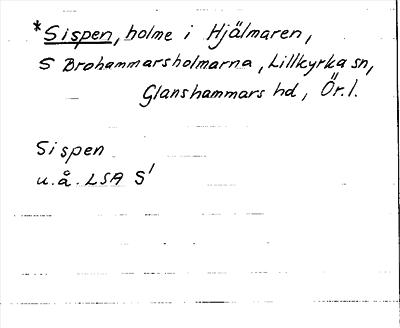 *Sispen, holme i Hjälmaren,
S Brohammarsholmarna, Lillkyrka sn,
Glanshammars hd, Ör. l.
Sispen
u.å. LSA S'